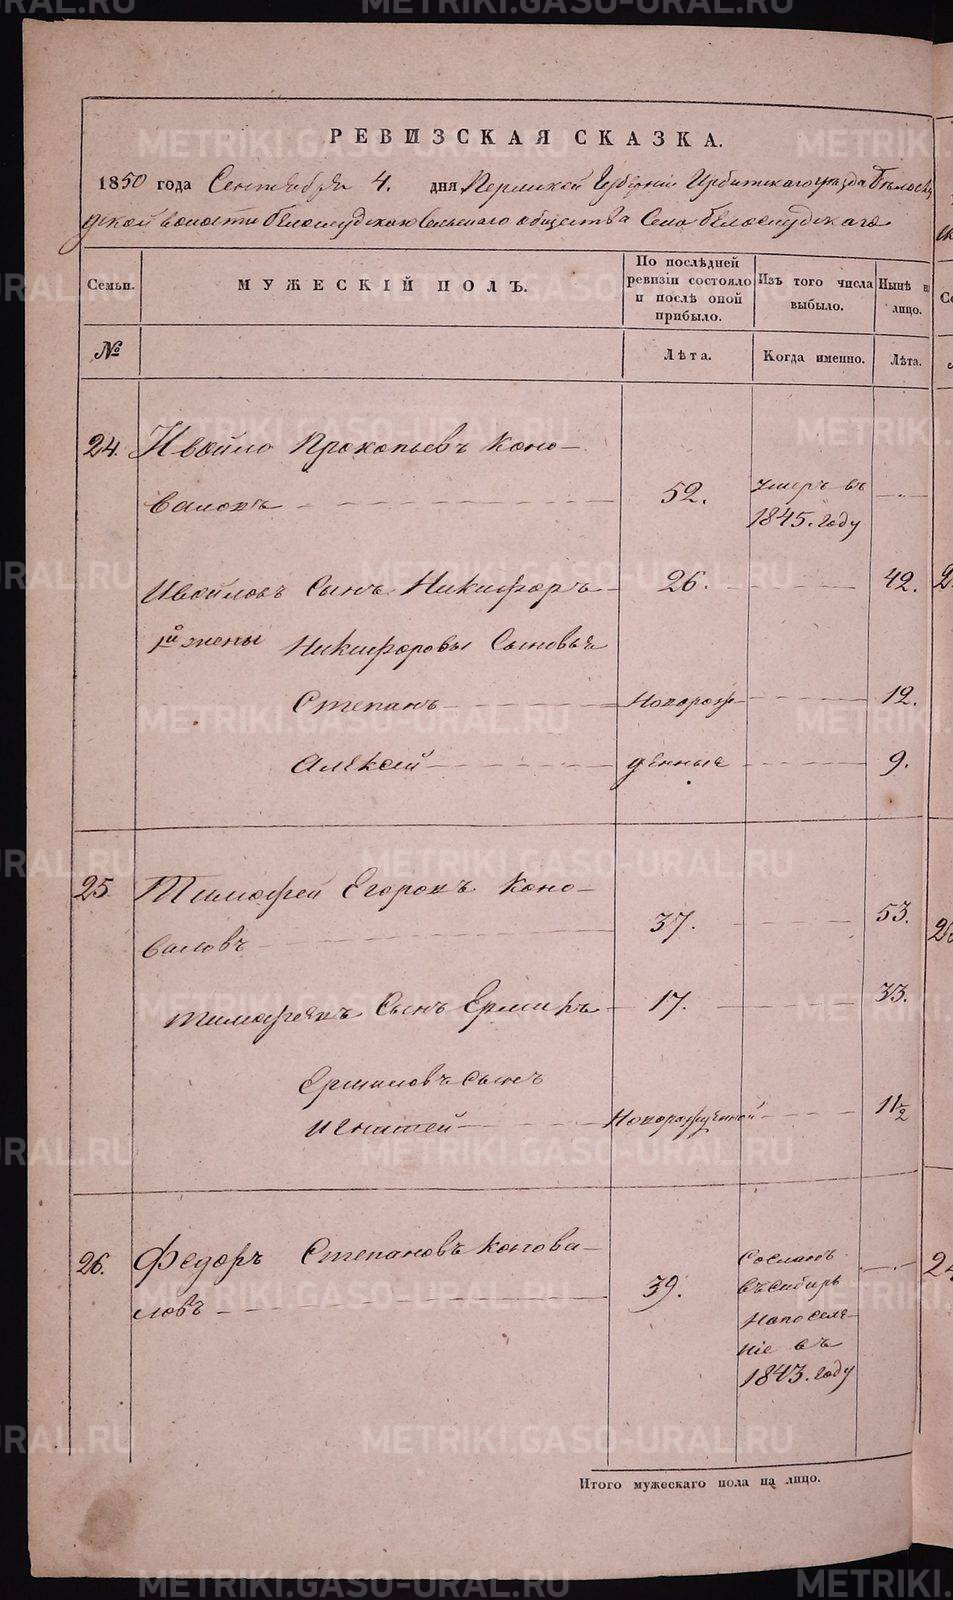 РЕВИЗСКАЯ СКАЗКА.
1850 года Сентября 4. дня Пермской Губерніи Ирбитскаго уезда Бѣлослу
дской волости Бѣлослудскаго Сельскаго общества Села Бѣлослудскаго
Семьи.
МУЖЕСКІЙ ПОЛЪ.
По послѣдней ревизіи состояло и послѣ оной прибыло.
Изъ того числа выбыло.
Нынѣ на лицо.
№
Лѣта.
Когда именно.
Лѣта.
24. Ивойло Прокопьевъ Коно-
валовъ 52. умеръ въ
1845. году
Ивойловъ Сынъ Никифоръ 26. 42.
1й жены Никифоровы Сыновья
Степанъ Новорож 12.
Алексей денные 9.
25. Тимофей Егоровъ Коно-
валовъ 37. 53.
Тимофеевъ Сынъ Ермилъ 17. 33.
Ермиловъ сынъ
Игнатей Новорожденной 11½
26. Федоръ Степановъ Конова-
ловъ 39. Сосланъ
въ Сибирь
На поселе-
ніе въ
1843. году
Итого мужескаго пола на лицо.
METRIKI.GASO-URAL.RU